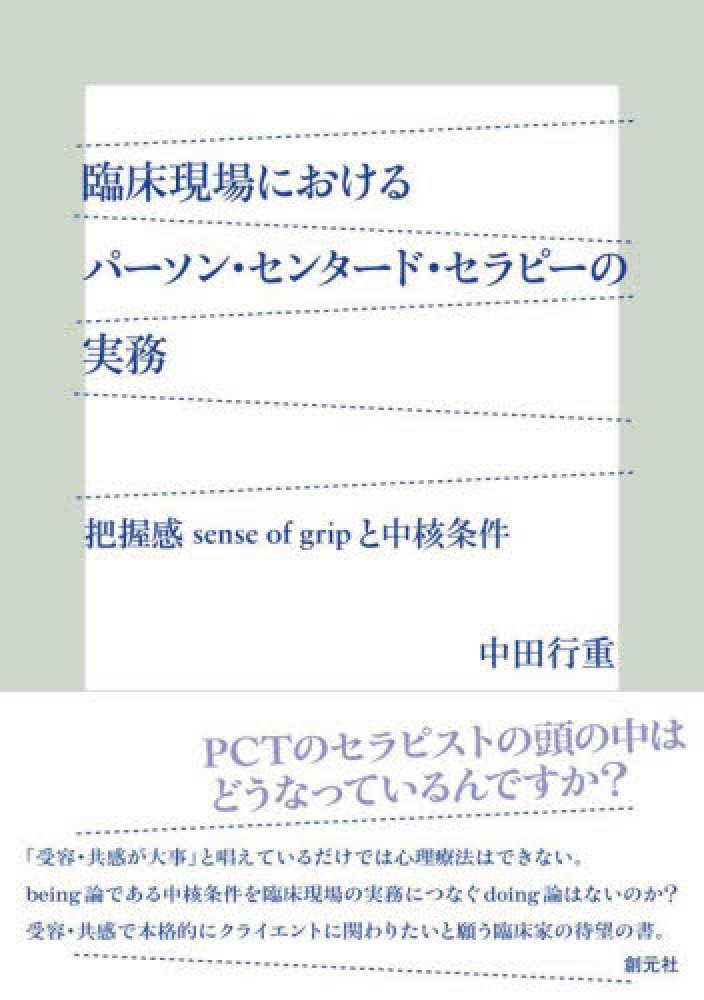 臨床現場における
パーソン・センタード・セラピーの
実務
把握感 sense of gripと中核条件
中田行重
PCTのセラピストの頭の中は
どうなっているんですか?
「受容・共感が大事」と唱えているだけでは心理療法はできない。
being論である中核条件を臨床現場の実務につなぐdoing論はないのか?
受容・共感で本格的にクライエントに関わりたいと願う臨床家の待望の書。
創元社